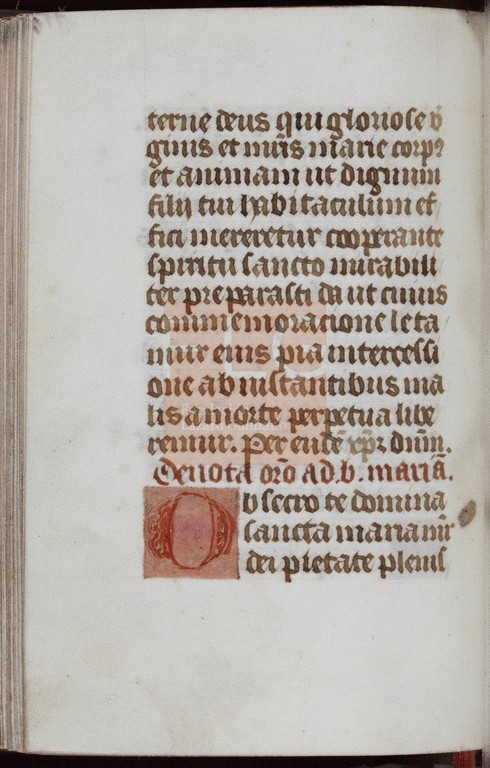 terne deus qui gloriose v̄
ginis et mr̄is marie corpꝰ
et animam ut dignum
filij tui habitaculum ef
fici mereretur cooperante
spiritu sancto mirabili
ter preparasti da ut cuius
commemoracione leta
mur eius pia intercessi
one ab instantibus ma
lis a morte perpetua libe
remur. Per eūdē xp̄ꝫ dn̄m.
Deuota or̄o ad. b. mariā.
Obsecro te domina
sancta maria mr̄
dei pietate plenis